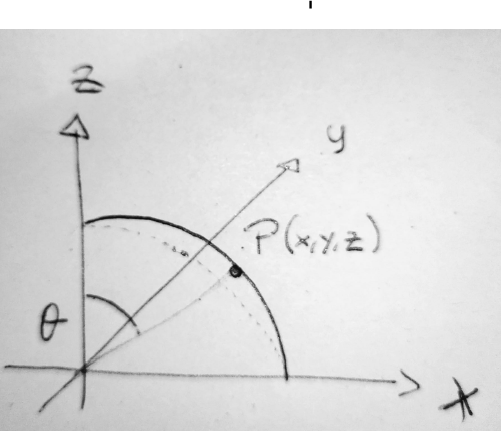 z
y
P(x,y,z)
θ
x